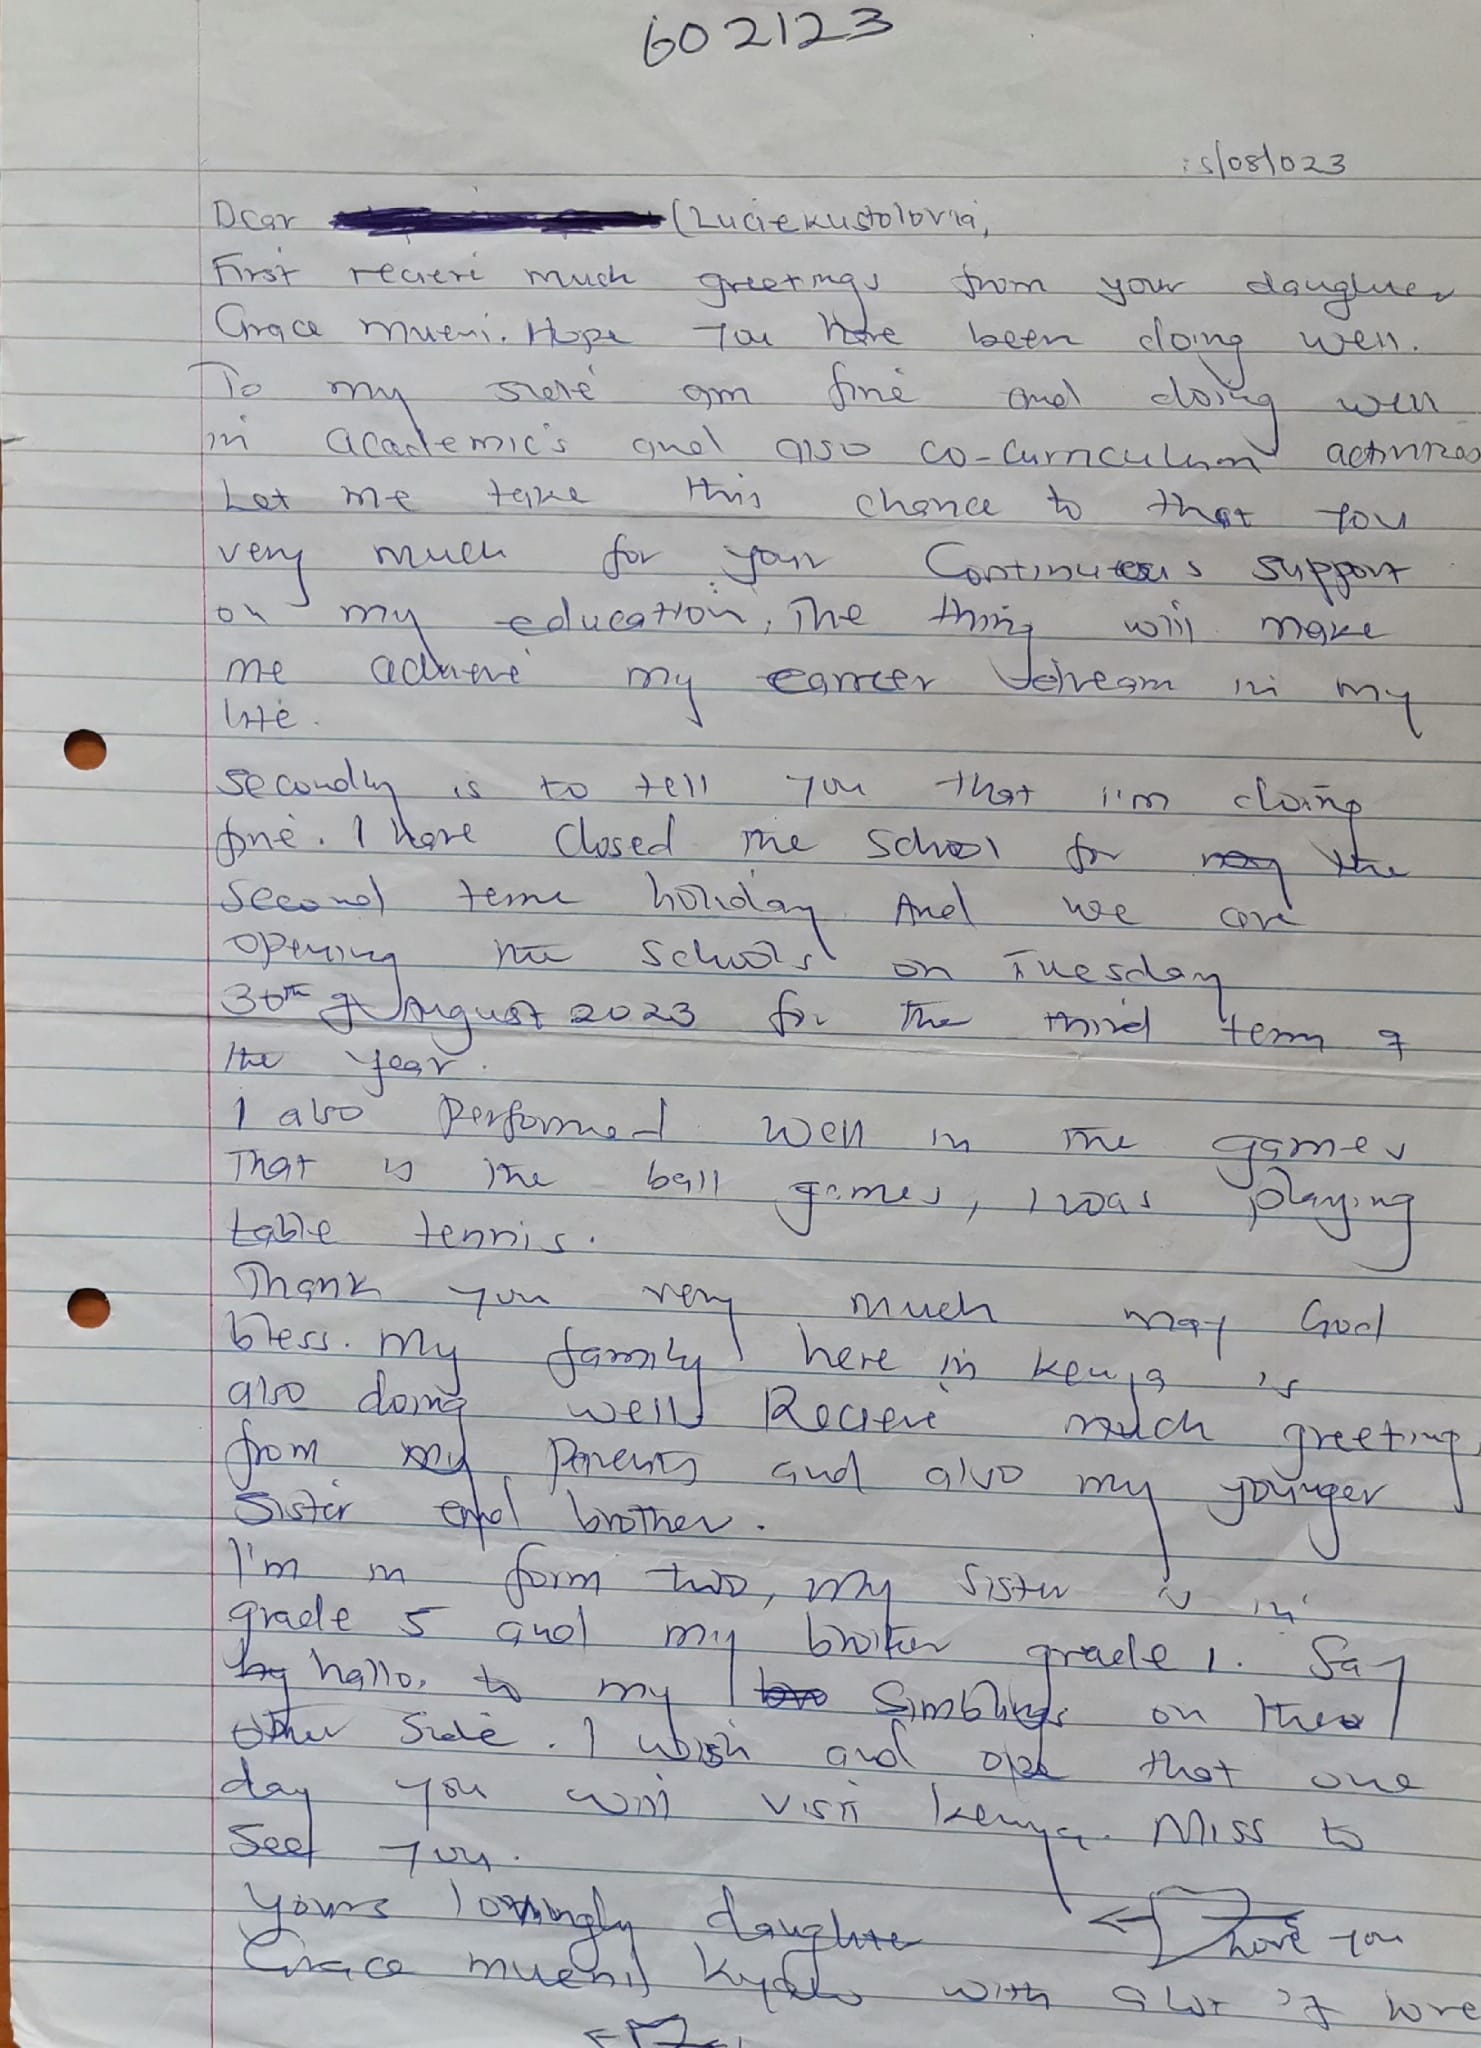 602123
15/08/023
Dear (Luciekustolovia,
First recieve much greetings from your daughter
Grace Mueni. Hope you have been doing well.
To my side am fine and doing well
in academic's and also co-curriculum activities
Let me take this chance to that you
very much for your Continuous support
on my education, The thing will make
me achieve my carrer dream in my
life.
Secondly is to tell you that i'm doing
fine. I have closed the school for the
second term holiday And we are
opening the schools on Tuesday
30th of August 2023 for the third term of
the year.
I also performed well in the games
That is the ball games, I was playing
table tennis.
Thank you very much may God
bless. My family here in Kenya is
also doing well Recieve much greeting
from my parents and also my younger
Sister and brother.
I'm in form two, my sister is in
grade 5 and my brother grade 1. Say
hallo, to my Simblings on the
other side. I wish and ope that one
day you will visit Kenya. Miss to
See you.
yours lovingly daughter
love you
Grace mueni Kyalo with alot of love